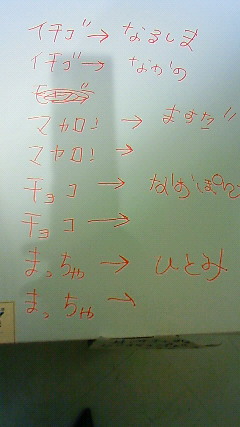 イチゴ→なるしま
イチゴ→ながの
マカロン→ますだ
マカロン→
チョコ→
チョコ→
まっちゃ→ひとみ
まっちゃ→